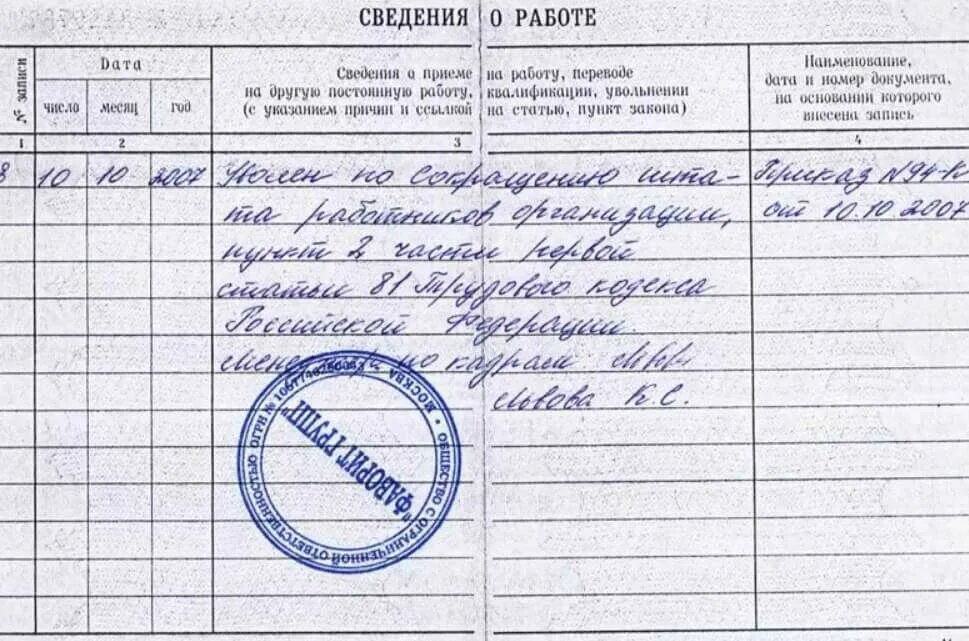 СВЕДЕНИЯ О РАБОТЕ
№ записи
Дата
число месяц год
Сведения о приеме на работу, переводе
на другую постоянную работу, квалификации, увольнении
(с указанием причин и ссылкой на статью, пункт закона)
Наименование,
дата и номер документа,
на основании которого
внесена запись
1 2 3 4
8 10 10 2007 Уволен по сокращению шта- Приказ №94-К
та работников организации, от 10.10 2007
пункт 2 части первой
статьи 81 Трудового кодекса
Российской Федерации.
Менеджер по кадрам
Львова К.С.
ОБЩЕСТВО С ОГРАНИЧЕННОЙ ОТВЕТСТВЕННОСТЬЮ ОГРН №
МОСКВА
"ФАВОРИТ ГРУПП"